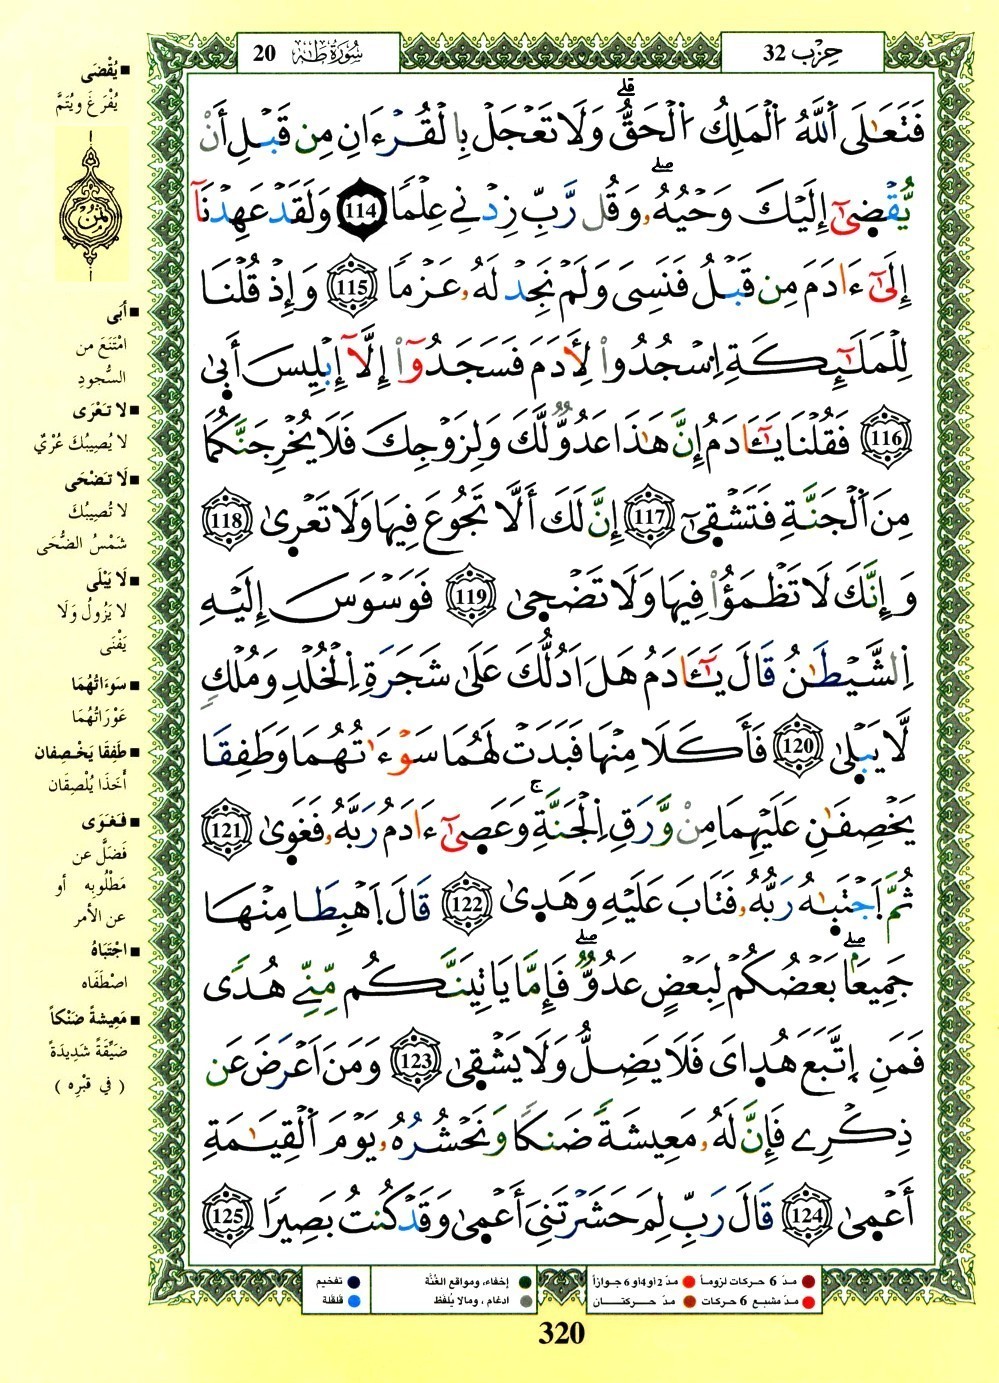 حِزْب 32
سُورَةُ طَهَ 20
فَتَعَٰلَى اَ۬للَّهُ اُ۬لْمَلِكُ اُ۬لْحَقُّۖ وَلَا تَعْجَلْ بِالْقُرْءَانِ مِن قَبْلِ أَنْ
يُّقْضَىٰٓ إِلَيْكَ وَحْيُهُۥۖ وَقُل رَّبِّ زِدْنِے عِلْماٗ 114 وَلَقَدْ عَهِدْنَآ
إِلَىٰٓ ءَادَمَ مِن قَبْلُ فَنَسِيَ وَلَمْ نَجِدْ لَهُۥ عَزْماٗ 115 وَإِذْ قُلْنَا
لِلْمَلَٰٓئِكَةِ اِ۟سْجُدُواْ لِأٓدَمَ فَسَجَدُوٓاْ إِلَّآ إِبْلِيسَ أَب۪ىٰ
116 فَقُلْنَا يَٰٓـَٔادَمُ إِنَّ هَٰذَا عَدُوّٞ لَّكَ وَلِزَوْجِكَ فَلَا يُخْرِجَنَّكُمَا
مِنَ اَ۬لْجَنَّةِ فَتَشْق۪ىٰٓ 117 إِنَّ لَكَ أَلَّا تَجُوعَ فِيهَا وَلَا تَعْر۪ىٰ 118
وَإِنَّكَ لَا تَظْمَؤُاْ فِيهَا وَلَا تَضْح۪ىٰ 119 فَوَسْوَسَ إِلَيْهِ
اِ۬لشَّيْطَٰنُ قَالَ يَٰٓـَٔادَمُ هَلَ اَدُلُّكَ عَلَىٰ شَجَرَةِ اِ۬لْخُلْدِ وَمُلْكٖ
لَّا يَبْل۪ىٰ 120 فَأَكَلَا مِنْهَا فَبَدَتْ لَهُمَا سَوْءَٰتُهُمَا وَطَفِقَا
يَخْصِفَٰنِ عَلَيْهِمَا مِنْ وَّرَقِ اِ۬لْجَنَّةِۚ وَعَص۪ىٰٓ ءَادَمُ رَبَّهُۥ فَغَو۪ىٰ 121
ثُمَّ اَ۪جْتَبٰ۪هُ رَبُّهُۥ فَتَابَ عَلَيْهِ وَهَد۪ىٰ 122 قَالَ اَ۪هْبِطَا مِنْهَا
جَمِيعاَۢۖ بَعْضُكُمْ لِبَعْضٍ عَدُوّٞۖ فَإِمَّا يَاتِيَنَّكُم مِّنِّے هُدىٗ
فَمَنِ اِ۪تَّبَعَ هُد۪ايَ فَلَا يَضِلُّ وَلَا يَشْق۪ىٰ 123 وَمَنَ اَعْرَضَ عَن
ذِكْرِے فَإِنَّ لَهُۥ مَعِيشَةٗ ضَنكاٗ وَنَحْشُرُهُۥ يَوْمَ اَ۬لْقِيَٰمَةِ
أَعْم۪ىٰ 124 قَالَ رَبِّ لِمَ حَشَرْتَنِيَ أَعْم۪ىٰ وَقَدْ كُنتُ بَصِيراٗ 125
■ يُقْضَى
يُفْرَغَ ويُتَمَّ
■ أَبَى
امْتَنَعَ من
السُّجودِ
■ لا تَعْرَى
لا يُصِيبُكَ عُرْيٌ
■ لَا تَضْحَى
لا تُصِيبُكَ
شَمْسُ الضُّحَى
■ لَا يَبْلَى
لا يَزُولُ وَلَا
يَفْنَى
■ سَوءَاتُهُمَا
عَوْرَاتُهُمَا
■ طَفِقَا يَخْصِفان
أَخَذَا يُلْصِقَان
■ فَغَوَى
فَضَلَّ عن
مَطْلُوبِه أو
عن الأمر
■ اجْتَبَاهُ
اصْطَفَاه
■ مَعِيشةً ضَنْكاً
ضَيِّقَةً شَدِيدَةً
( في قَبْرِه )
مدّ 6 حركات لزوماً مدّ 2 أو 4 أو 6 جوازاً
مدّ مشبع 6 حركات مدّ حركتان
إخفاء، ومواقع الغُنَّة
ادغام ، ومالا يُلفَظ
تفخيم
قلقلة
320